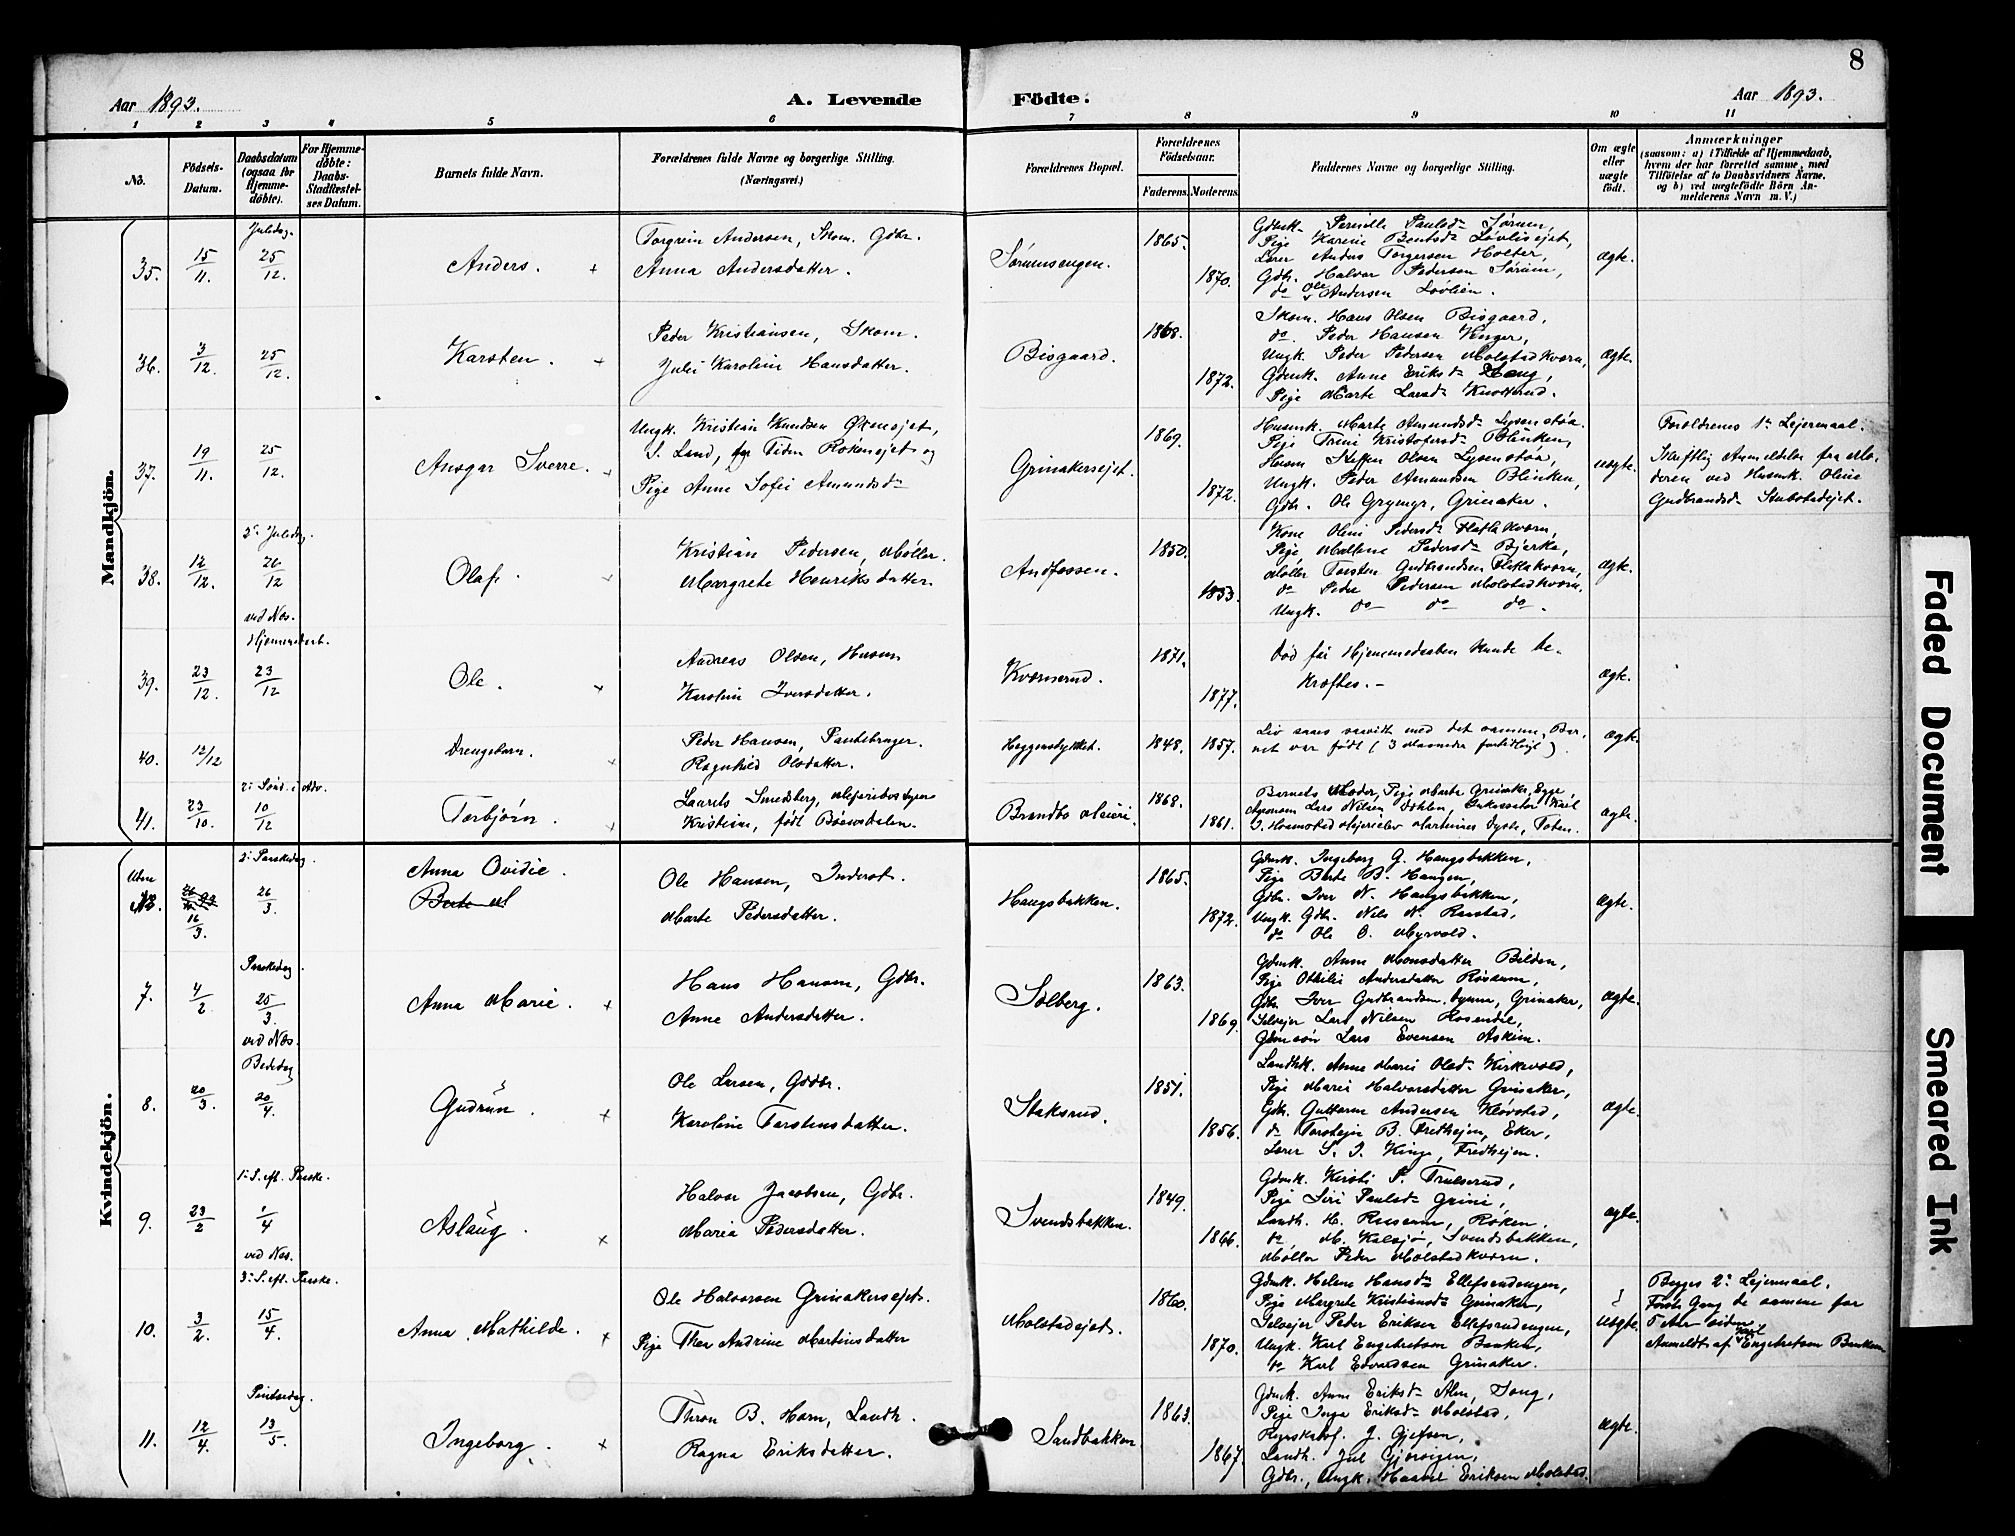 8
Aar 1893.
A. Levende
Födte.
Aar 1893.
1 2 3 4 5 6 7 8 9 10 11
No.
Födsels-
Datum.
Daabsdatum
(ogsaa for
Hjemme-
döbte).
For Hjemme-
döbte:
Daabs-
Stadfæstel-
ses Datum.
Barnets fulde Navn.
Forældrenes fulde Navne og borgerlige Stilling.
(Næringsvei.)
Forældrenes Bopæl.
Forældrenes
Födselsaar.
Faderens. Moderens.
Faddernes Navne og borgerlige Stilling.
Om ægte
eller
uægte
födt.
Anmærkninger
(saasom: a) i Tilfælde af Hjemmedaab,
hvem der har forrettet samme, med
Tilföielse af to Daabsvidners Navne,
og b) ved uægtefödte Börn An-
melderens Navn m. V.)
Mandkjön.
35.
15/11.
Juledag.
25/12.
Anders.
Torgrein Andersen, Skom. Gdbr.
Anna Andersdatter.
Sørumsengen.
1865.
1870.
Gdmk. Pernille Paulsd. Sørum,
Pige Karine Bentsd. Løvlisejet,
Lærer Anders Torgersen Holter,
Gdbr. Halvor Pedersen Sørum,
do Ole Andersen Løvlien.
ægte.
36.
3/12.
25/12.
Karsten.
Peder Kristiansen, Skom.
Julie Karoline Hansdatter.
Bisgaard.
1868.
1872.
Skom. Hans Olsen Bisgaard,
do. Peder Hansen Vinger,
Ungk. Peder Pedersen Molstadkværn,
Gdmk. Anne Eriksd. Haug,
Pige Marte Larsd.
ægte.
37.
19/11.
25/12.
Ansgar Sverre.
Ungk. Kristian Knudsen Øxnesjet,
S. Land, før Tiden Røkensejet og
Pige Anne Sofie Amundsd.
Grinakersejet.
1869.
1872.
Husmk. Marte Amundsd. Lysenstøa
Pige Trine Kristofersd. Blinken,
Husm. Steffen Olsen Lysenstøa,
Ungk. Peder Amundsen Blinken,
Gdbr. Ole Grymyr, Grinaker.
uægte.
Forældrenes 1ste Lejermaal.
Skriftlig Anmeldelse fra Mo-
deren ved Husmk. Oline
Gudbrandsd. Stubstadejet.
38.
12/12.
2. Juledag.
26/12
ved Næs.
Olaf.
Kristian Pedersen, Møller.
Margrete Henriksdatter.
Andfossen.
1850.
1853.
Kone Oline Pedersd. Flatlakværn,
Pige Mallene Pedersd. Bjerke,
Møller Torsten Gudbrandsen Flatlakværn,
do Peder Pedersen Molstadkværn,
Ungk. do do do.
ægte.
39.
23/12.
Hjemmedøbt.
23/12
Ole.
Andreas Olsen, Husm.
Karoline Iversdatter.
Kværnerud.
1871.
1877.
Død før Hjemmedaaben kunde be-
kræftes.-
ægte.
40.
12/12
Drengebarn.
Peder Hansen, Pantebruger.
Ragnhild Olsdatter.
Heggenstykket.
1848. 1857.
Liv saaes saavidt med det samme, Bar-
net var født (3 Maaneder fortidligt).
ægte.
41.
23/10.
2. Sønd. i Adv.
10/12
Torbjørn.
Laurits Smedsberg, Mejeribestyrer
Kristiane, født Bøensdalen.
Brandbo Meieri.
1868.
1861.
Barnets Moder, Pige Marte Grinaker, Egge,
Agronom Lars Nilsen Dahlen, Inkassator Karl
J. Hvamstad Mejerielev Martinius Dyste, Toten.
ægte.
Kvindekjön.
16/3.
2. Paaskedag.
26/3.
Anna Ovidie.
Berte M
Ole Hansen, Inderst.
Marte Pedersdatter.
Haugsbakken.
1865.
1872.
Gdmk. Ingeborg G. Haugsbakken,
Pige Berte B. Haugen,
Gdbr. Iver N. Haugsbakken,
Ungk. Gdbr. Nils N. Raastad,
do Ole O. Myrvold.
ægte.
7.
4/2.
Paaskedag.
25/3.
ved Næs.
Anna Marie.
Hans Hansen, Gdbr.
Anne Andersdatter.
Solberg.
1863.
1869.
Gdmk. Anne Monsdatter Bilden,
Pige Othilie Andersdatter Røssum,
Gdbr. Iver Gudbrandsen Lynne, Grinaker,
Selvejer Lars Nilsen Rosendal,
Gbmsøn Lars Evensen Askim.
ægte.
8.
20/3.
Bededag
20/4.
Gudrun.
Ole Larsen, Gdbr.
Karoline Torstensdatter.
Staksrud.
1851.
1856.
Landhk. Anne Marie Olsd. Kirkevold,
Pige Marie Halvorsdatter Grinaker,
Gdbr. Guttorm Andersen Klovstad,
do Torstejn B. Fredhejm, Eker,
Lærer S. J. Kinge, Fredhejm.
ægte.
9.
23/2
1. S. eft. Paaske.
1/4
ved Næs.
Aslaug.
Halvor Jacobsen, Gdbr.
Maria Pedersdatter.
Svendsbakken.
1849.
1866.
Gdmk. Kirsti P. Trulserud,
Pige Siri Paulsd. Grini,
Landh. H. Russerum, Røken.
do M. Kalsjø, Svendsbakken,
Møller Peder Molstadkværn.
ægte.
10.
3/2.
3. S. eft. Paaske.
15/4.
Anna Mathilde.
Ole Halvorsen Grinakersejet.
Pige Thea Andrine Martinsdatter
Molstadejet.
1860.
1870.
Gdmk. Helene Hansd. Ellefsrudengen,
Pige Margrete Kristiansd. Grinaker,
Selvejer Peder Eriksen Ellefsrudengen,
Ungk. Karl Engebretsen Banken,
do Karl Edvardsen Grinaker.
uægte.
Begges 2. Lejermaal.
Første Gang de samme for
7 Aar siden
Anmeldt af Karl Engebretsen Banken
11.
12/4.
Pintsedag.
13/5.
Ingeborg.
Thron B. Horn, Landh.
Ragna Eriksdatter.
Sandbakken
1863.
1867.
Gdmk. Anne Eriksd. Alm,
Pige Inga Eriksd. Molstad,
J. Gjefsen,
Landh. Jul Gjørvigen,
Gdbr., Ungk. Haavel Eriksen Molstad.
ægte.
Faded Document
Smeared Ink